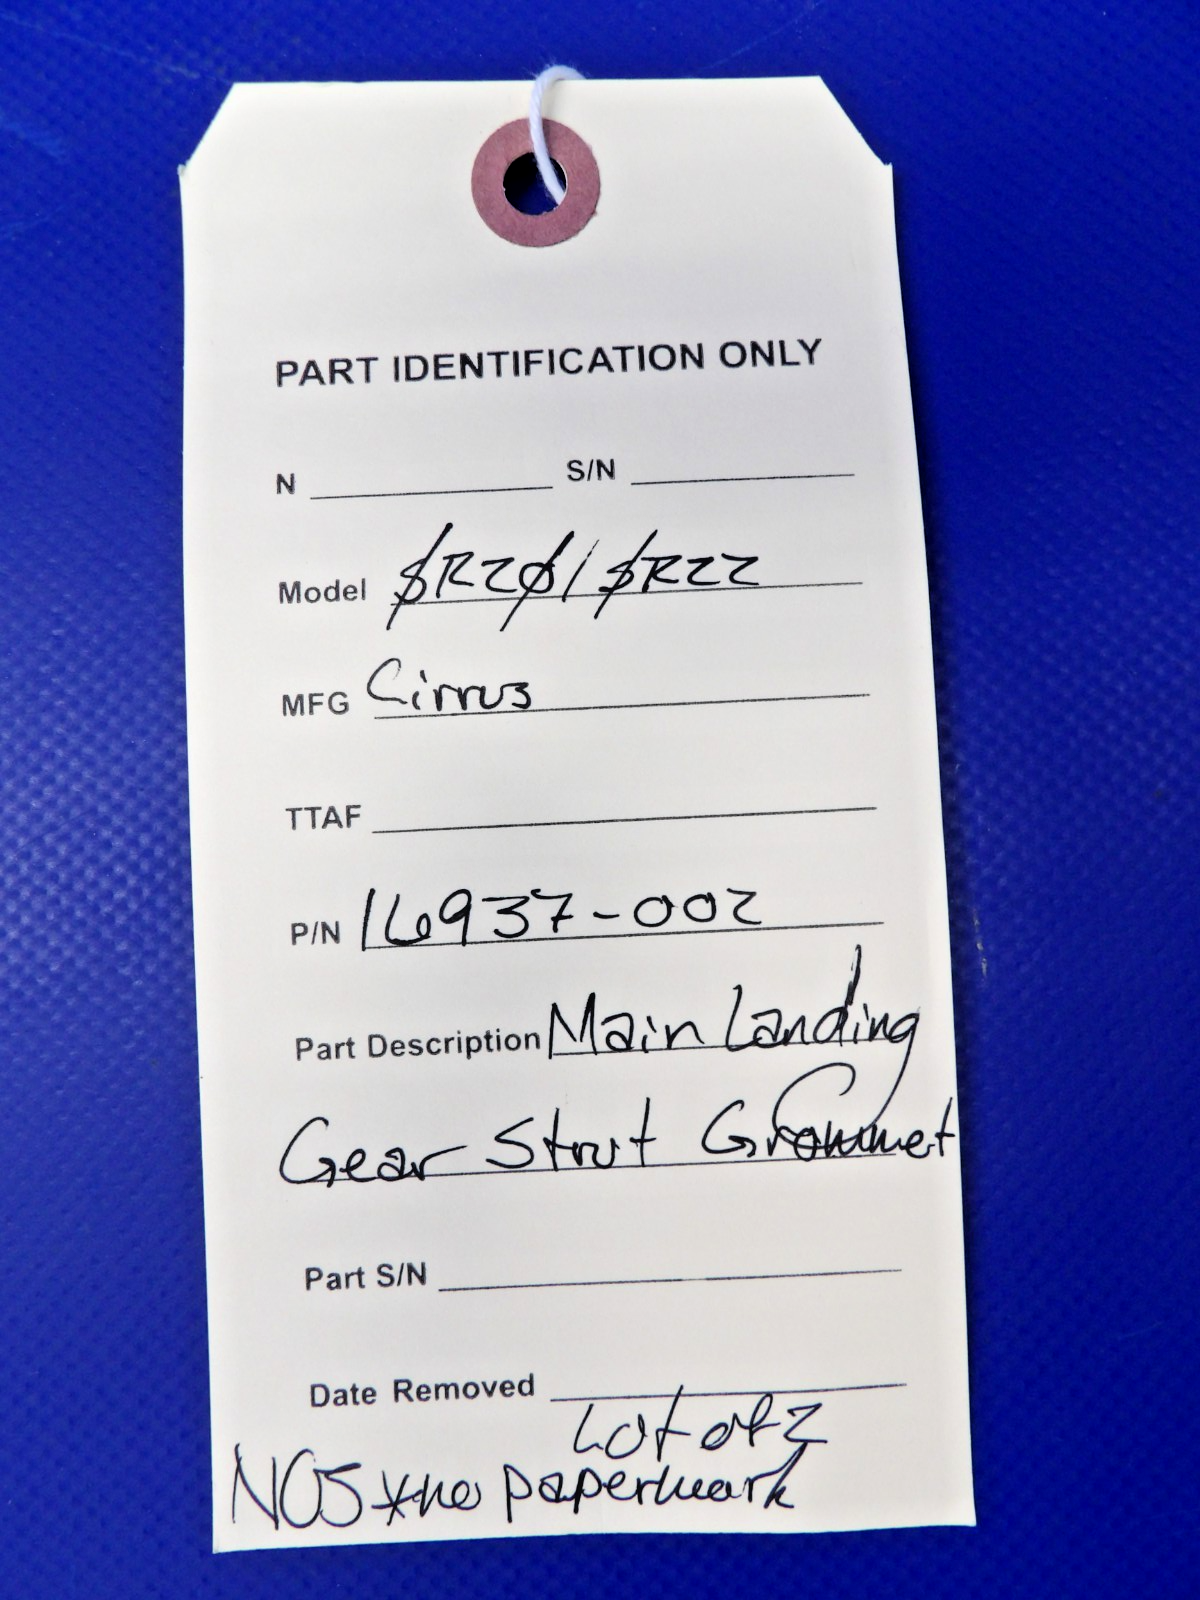 PART IDENTIFICATION ONLY
N S/N
Model SR20/SR22
MFG Cirrus
TTAF
P/N 16937-002
Part Description Main Landing
Gear Strut Grommet
Part S/N
Date Removed
Lot of 2
NOS *no paperwork